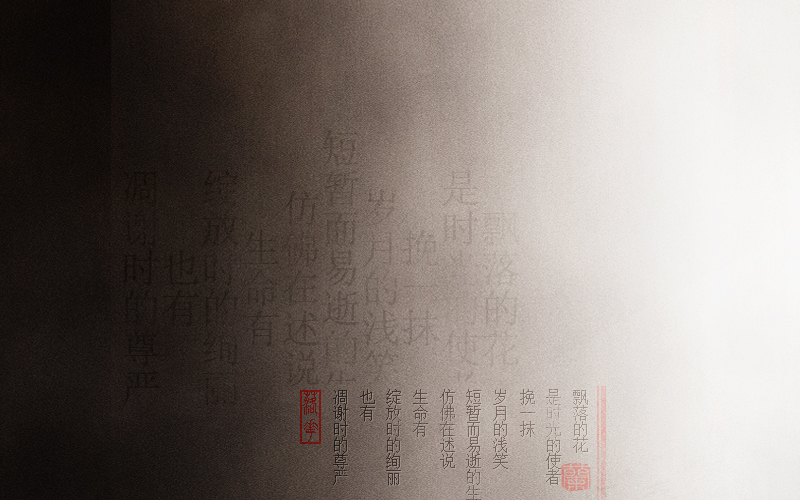 飘落的花
是时光的使者
挽一抹
岁月的浅笑
短暂而易逝的生
仿佛在述说
生命有
绽放时的绚丽
也有
凋谢时的尊严
飘落的花
是时光的使者
挽一抹
岁月的浅笑
短暂而易逝的生
仿佛在述说
生命有
绽放时的绚丽
也有
凋谢时的尊严